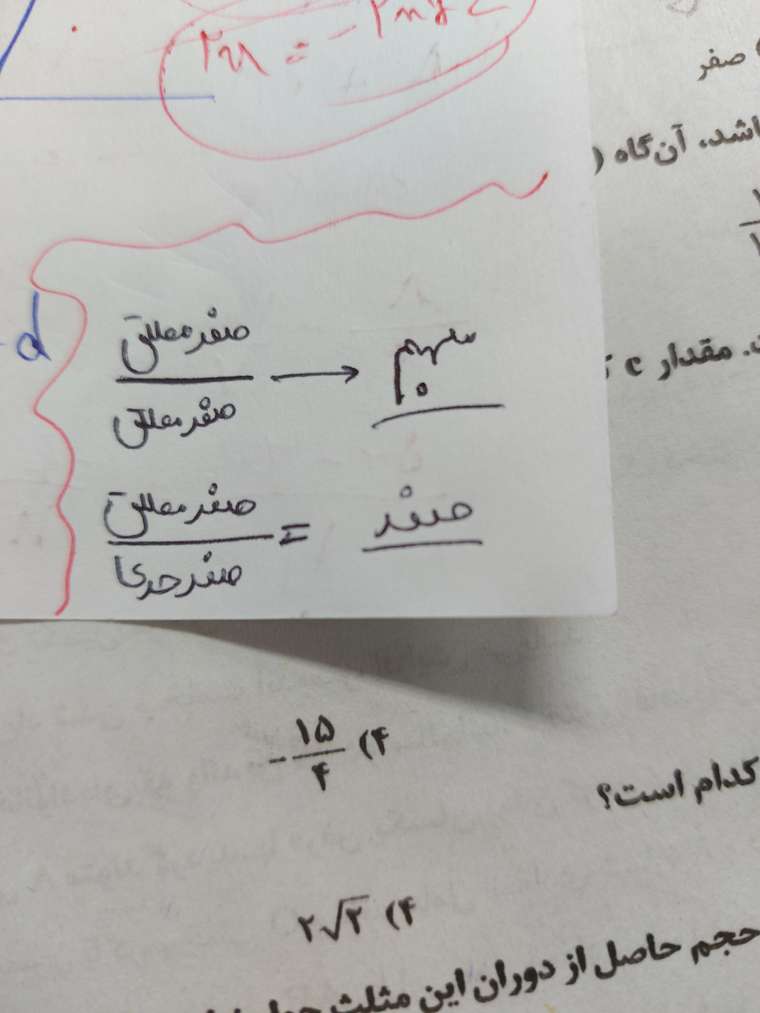 ۲x = -۲x+۲
صفر
باشد، آن‌گاه (
d
صفر مطلق
صفر مطلق
→ مبهم
مقدار c
صفر مطلق
صفر حدی
= صفر
-۱۵/۴ (۴
کدام است؟
۲√۲ (۴
حجم حاصل از دوران این مثلث حول